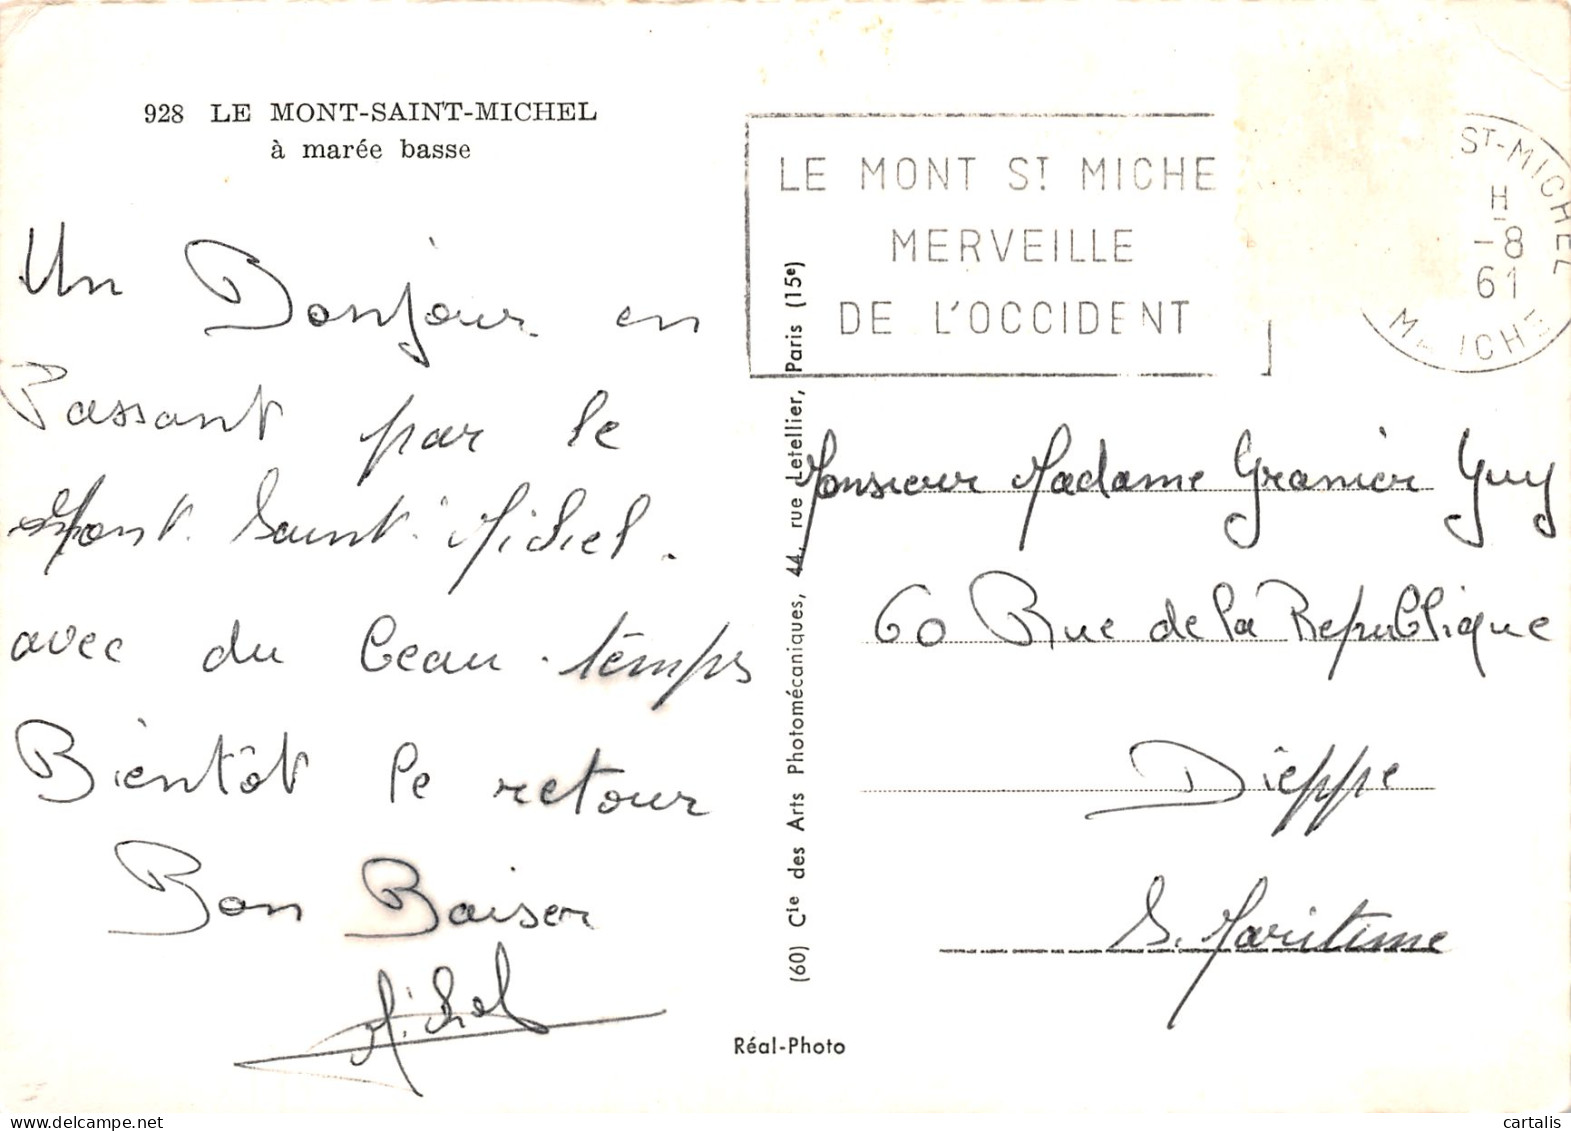 928 LE MONT-SAINT-MICHEL
à marée basse
Un Bonjour en
Passant par le
Mont. Saint. Michel.
avec du beau temps
Bientôt le retour
Bon Baiser
Michel
LE MONT ST MICHE
MERVEILLE
DE L'OCCIDENT
ST-MICHEL
H
-8
61
(60) Cie des Arts Photomécaniques, 44, rue Letellier, Paris (15e)
Monsieur Madame Granier Guy
60 Rue de la Republique
Dieppe
S. Maritime
Réal-Photo
cartalis